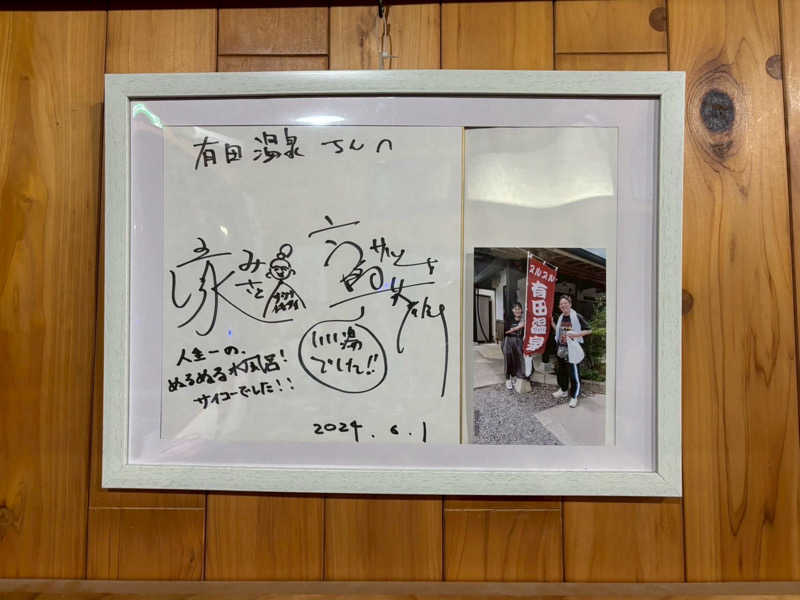 有田温泉さんへ
みさと
いい湯
でした!!
人生一の、
ぬるぬる水風呂!
サイコーでした!!
2024.6.1
ツルツル
有田温泉